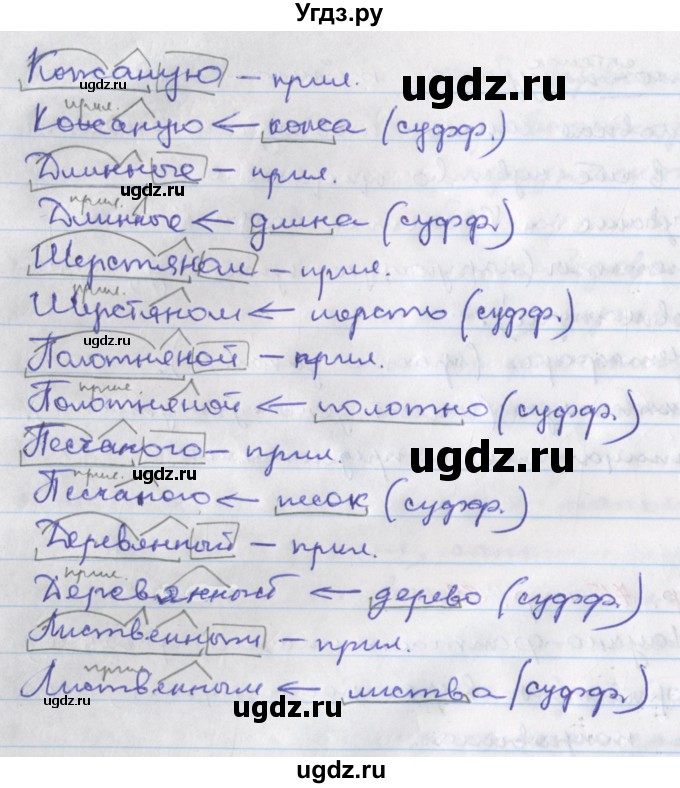 Угдз.ру
Кожаную – прил.
ugdz.ru
прил.
Кожаную ← кожа (суфф.)
ugdz.ru
Длинные – прил.
ugdz.ru
прил.
Длинные ← длина (суфф.)
Шерстяном – прил.
ugdz.ru
прил.
Шерстяном ← шерсть (суфф.)
ugdz.ru
Полотняной – прил.
ugdz.ru
прил.
Полотняной ← полотно (суфф.)
Песчаного – прил.
ugdz.ru
ugdz.ru
прил.
Песчаного ← песок (суфф.)
ugdz.ru
Деревянный – прил.
ugdz.ru
прил.
Деревянный ← дерево (суфф.)
Лиственным – прил.
ugdz.ru
прил.
Лиственным ← листва (суфф.)
ugdz.ru
ugdz.ru
ugdz.ru